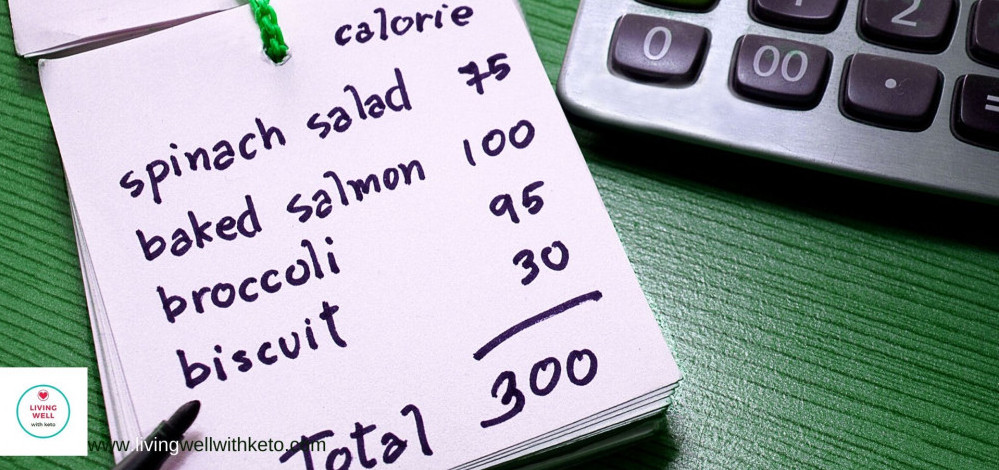 calorie
spinach salad 75
baked salmon 100
broccoli 95
biscuit 30
Total 300
0
00
1
2
.
=
LIVING
WELL
with keto
www.livingwellwithketo.com